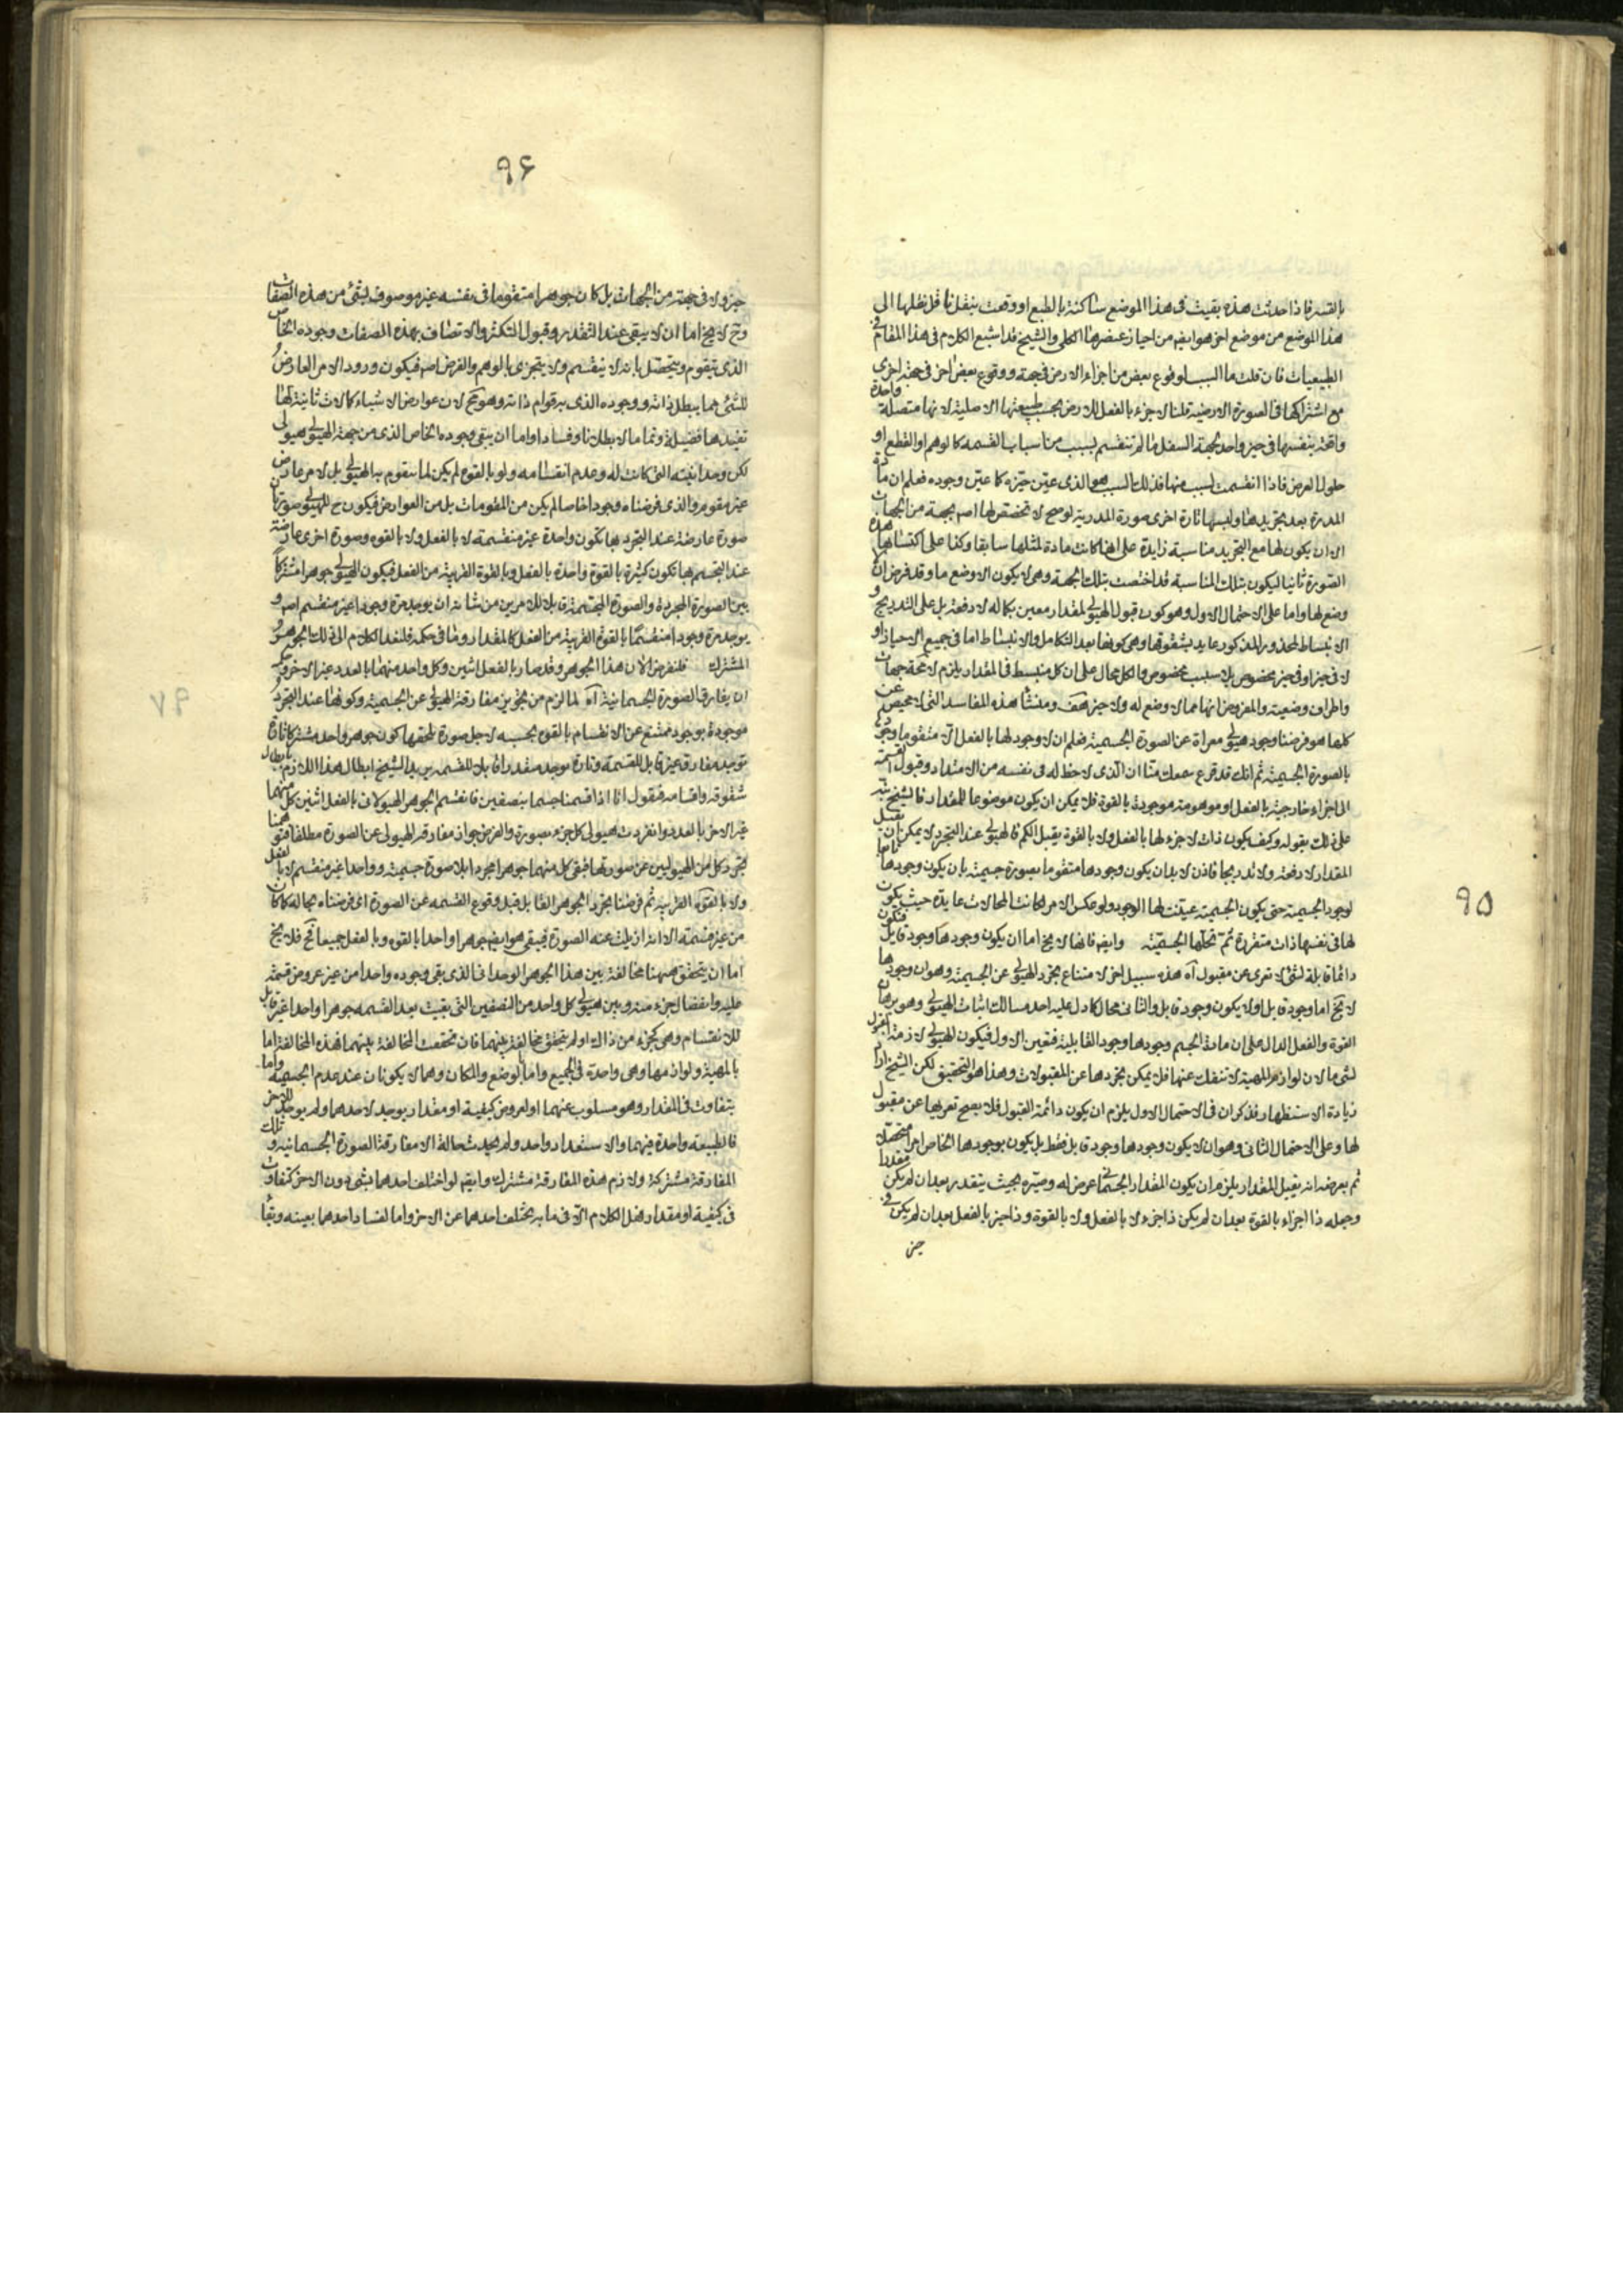 ۹۵
بالقسر فاذا حدثت هذه بقيت فى هذا الموضع ساكنة بالطبع او وقعت بنقل ناقل نقلها الى
هذا الموضع من موضع اخر هو ايضا من احياز عنصرها الكلى والشيخ قد اشبع الكلام فى هذا المقام فى
الطبيعيات فان قلت ما السبب لوقوع بعض من اجزاء الارض فى جهة ووقوع بعض اخر فى جهة اخرى
مع اشتراكها فى الصورة الارضية قلنا لا جزء بالفعل للارض بحسب طبيعتها الاصلية لانها متصلة واحدة
واقعة بنفسها فى حيز واحد لجهة السفل ما لم تنقسم بسبب من اسباب القسمه كالوهم او القطع او
حلول العرض فاذا انقسمت لسبب منها فذلك السبب هو الذى عين حيزه كما عين وجوده فعلم ان مادة
المدرة بعد تجريدها ولبسها تارة اخرى صورة المدرية لو صح لا تخصص لها اصم بجهة من الجهات
الا ان يكون لها مع التجريد مناسبة زايدة على انها كانت مادة لمثلها سابقا وكذا على اكتسائها هذه
الصورة ثانيا ليكون بتلك المناسبة قد اختصت بتلك الجهة وهى لا يكون الا وضع ما وقد فرض ان لا
وضع لها واما على الاحتمال الاول وهو كون قبول الهيولى لمقدار معين بكماله لا دفعة بل على التدريج و
الانبساط فالمحذور المذكور عايد بشقوقها وهى كونها بعد التكامل والانبساط اما فى جميع الاحياز او
لا فى حيز او فى حيز مخصوص بلا سبب مخصوص والكل محال على ان كل منبسط فى المقدار يلزم لا محة جهات
واطراف وضعية والمفروض انها مما لا وضع له ولا حيز هف ومنشأ هذه المفاسد التى لا محيص عن
كلها هو فرضنا وجود هيولى معراة عن الصورة الجسمية فعلم ان لا وجود لها بالفعل الا متقوما وجودها
بالصورة الجسمية ثم انك قد قرع سمعك منا ان الذى لا حظ له فى نفسه من الامتداد وقبول القسمة
الى اجزاء خارجية بالفعل او موهومة موجودة بالقوة فلا يمكن ان يكون موضوعا للمقدار فالشيخ نبه
على ذلك بقوله وكيف يكون ذات لا جزء لها بالفعل ولا بالقوة يقبل الكم فالهيولى عند التجرد لا يمكن ان تقبل
المقدار لا دفعة ولا تدريجا فاذن لا بد ان يكون وجودها متقوما بصورة جسمية بان يكون وجودها تابعا
لوجود الجسمية حتى يكون الجسمية عينت لها الوجود ولو عكس الامر لكانت المحالات عايدة حيث يكون
لها فى نفسها ذات متفردة ثم تحلها الجسمية وايضا فانها لا يخ اما ان يكون وجودها وجود قابل فتكون
دائما قابلة لشئ لا تعرى عن مقبول اه هذه سبيل اخر لامتناع تجرد الهيولى عن الجسمية وهو ان وجودها
لا يخ اما وجود قابل او لا يكون وجود قابل والثانى محال كما دل عليه احد مسالك اثبات الهيولى وهو برهان
القوة والفعل الدال على ان مادة الجسم وجودها وجود القابلية فتعين الاول فيكون الهيولى لازمة القبول
لشئ ما لان لوازم المهية لا تنفك عنها فلا يمكن تجردها عن المقبولات وهذا هو التحقيق لكن الشيخ اراد
زيادة الاستظهار فذكر ان فى الاحتمال الاول يلزم ان يكون دائمة القبول فلا يصح تعريها عن مقبول
لها وعلى الاحتمال الثانى وهو ان لا يكون وجودها وجود قابل فقط بل يكون بوجودها الخاص امرا متحصلا
ثم يعرضه انه يقبل المقدار يلزم ان يكون المقدار الجسمانى عرض له وصيره بحيث يتقدر بعد ان لم يكن مقدرا
وجعله ذا اجزاء بالقوة بعد ان لم يكن ذا جزء لا بالفعل ولا بالقوة وذا حيز بالفعل بعد ان لم يكن فى
حيز
۹۶
حيز ولا فى جهة من الجهات بل كان جوهرا متقوما فى نفسه غير موصوف بشئ من هذه الصفات
وح لا يخ اما ان لا يبقى عند التقدر وقبول التكثر والاتصاف بهذه الصفات وجوده الخاص
الذى يتقوم ويتحصل بانه لا ينقسم ولا يتجزى بالوهم والفرض اصم فيكون ورود الامر العارض
للشئ مما يبطل ذاته ووجوده الذى به قوام ذاته وهو مح لان عوارض الاشياء كمالات ثانية لها
تفيدها فضيلة وتماما لا بطلانا وفسادا واما ان يبقى وجوده الخاص الذى من جهة الهيولى هيولى
لكن وحدانيته التى كانت له وعدم انقسامه ولو بالقوة لم يكن لما يتقوم به الهيولى بل لامر عارض
غير مقوم والذى فرضناه وجودا خاصا لم يكن من المقومات بل من العوارض فيكون ح للهيولى صورتان
صورة عارضة عند التجرد بها يكون واحدة غير منقسمة لا بالفعل ولا بالقوه وصورة اخرى عارضة
عند التجسم بها تكون كثيرة بالقوة واحدة بالفعل وبالقوة القريبة من الفعل فيكون الهيولى جوهرا مشتركا
بين الصورة المجردة والصورة المجسمة قابلا للامرين من شانه ان يوجد مرة وجودا غير منقسم اصم و
يوجد مرة وجودا منقسما بالقوة القريبة من الفعل كالمقدار وما فى حكمه فلنعد الكلام الى ذلك الجوهر
المشترك فلنفرض الان هذا الجوهر وقد صار بالفعل اثنين وكل واحد منهما بالعدد غير الاخر وحكمه
ان يفارق الصورة الجسمانية آه لما لزم من تجويز مفارقة الهيولى عن الجسمية وكونها عند التجرد
موجودة بوجود ممتنع عن الانقسام بالقوه بحسبه لاجل صورة تلحقها كون جوهر واحد مشتركا تارة
توجد مفارقة غير قابل للقسمة وتارة يوجد متقدرا قابلا للقسمه يريد الشيخ ابطال هذا اللازم بابطال
شقوقه واقسامه فنقول انا اذا قسمنا جسما بنصفين فانقسم الجوهر الهيولانى بالفعل اثنين كل منهما
غير الاخر بالعدد وانفردت هيولى كل جزء بصورة والفرض جواز مفارقة الهيولى عن الصورة مطلقا فتوهمنا
تجرد كل من الهيوليين عن صورتها فبقى كل منهما جوهرا مجردا بلا صورة جسمية وواحدا غير منقسم لا بالفعل
ولا بالقوه القريبه ثم فرضنا تجرد الجوهر القابل قبل وقوع القسمه عن الصورة اى فرضناه بحاله كما كان
من غير قسمة الا انه ازيلت عنه الصورة فيبقى هو ايضا جوهرا واحدا بالقوه وبالفعل جميعا فح فلا يخ
اما ان يتحقق ههنا مخالفة بين هذا الجوهر الوحدانى الذى بقى وجوده واحدا من غير عروض قسمة
عليه وانفصال جزء منه وبين هيولى كل واحد من النصفين التى بقيت بعد القسمه جوهرا واحدا غير قابل
للانقسام وهى كجزء من ذاك او لم يتحقق مخالفة بينهما فان تحققت المخالفة بينهما فهذه المخالفة اما
بالمهية ولوازمها وهى واحدة فى الجميع واما بالوضع والمكان وهما لا يكونان عند عدم الجسمية واما
بتفاوت فى المقدار وهو مسلوب عنهما او لعروض كيفية او مقدار يوجد لاحدهما ولم يوجد للاخر
فالطبيعه واحدة فيهما والاستعداد واحد ولم يحدث حالة الا مفارقة الصورة الجسمانيه وتلك
المفارقة مشتركة ولازم هذه المفارقة مشترك وايضا لو اختلف احدهما بشئ دون الاخر كتفاوت
فى كيفية او مقدار نقل الكلام الى ما به يختلف احدهما عن الاخر واما لفساد احدهما بعينه وبقا